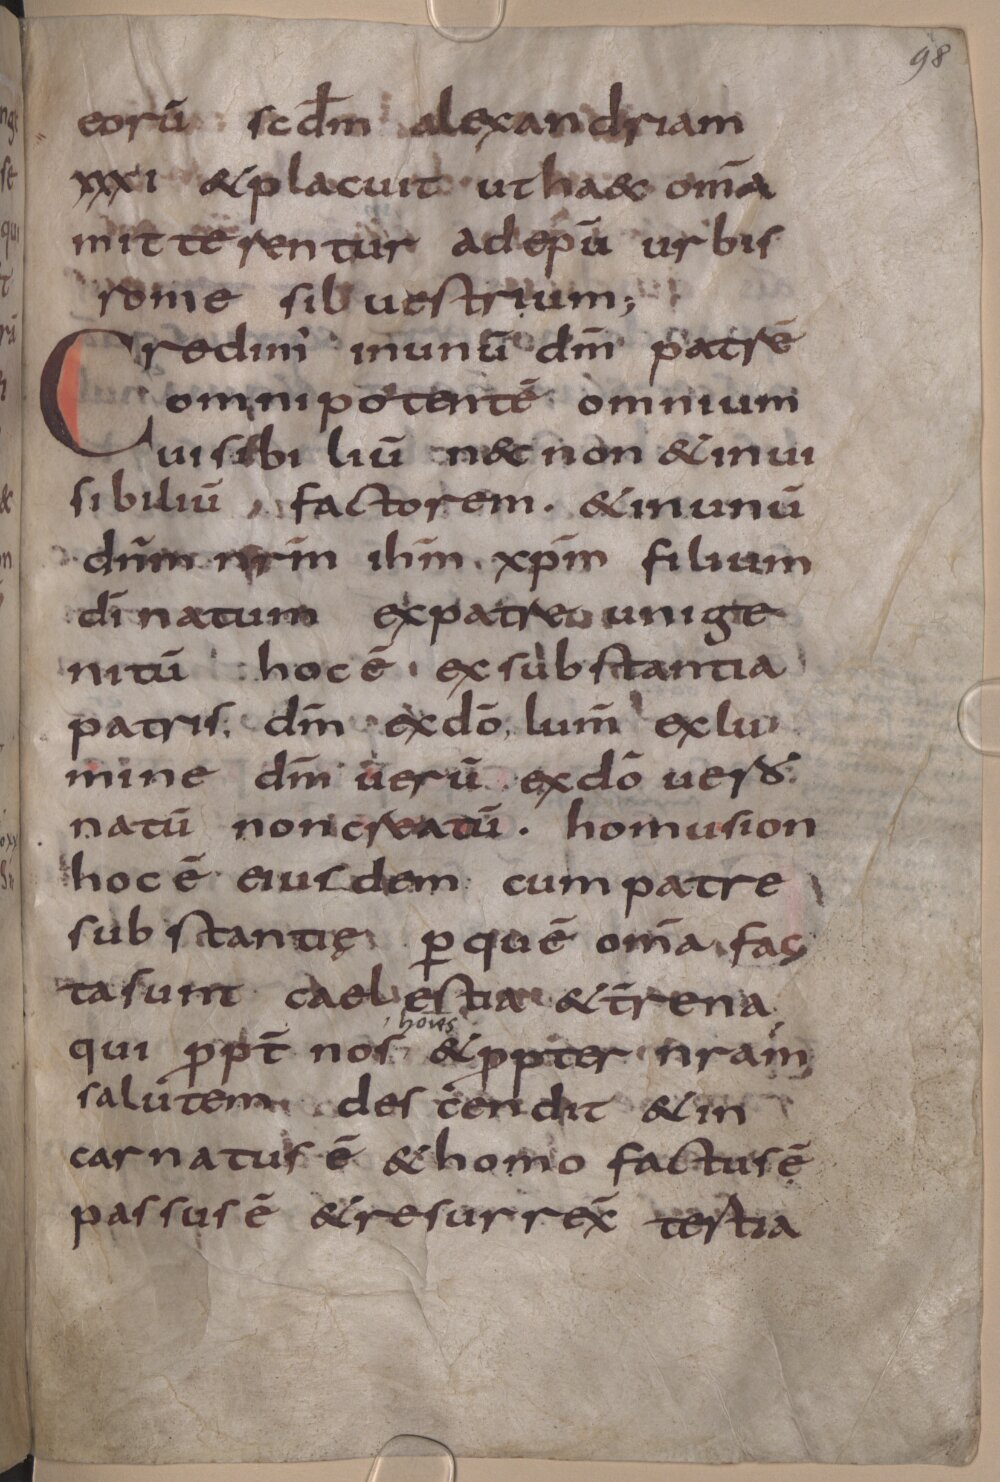 98
eorū scdm̄ alexandriam
xxxi &placuit utha&c om̄a
mitterentur adepū urbis
rome silvuestrium;
Credim' inunū dm̄ patrē
omnipotentē omnium
uisibiliū n&cnon &inui
sibiliū factorem. &inunū
dnm̄ nrm̄ ihm̄ xpm̄ filium
dī natum expatre unige
nitū hoc ē exsubstantia
patris. dm̄ exdō, lum̄ exlu
mine dm̄ uerū exdō uero.
natū noncreatū. homusion
hoc ē eiusdem cum patre
substantię perquē om̄a fac
tasunt caelestia &t̄rena
hoīēs
qui ppt̄ nos &ppter nram̄
salutem descendit &in
carnatus ē &homo factus ē
passus ē &resurrex̄ tertia